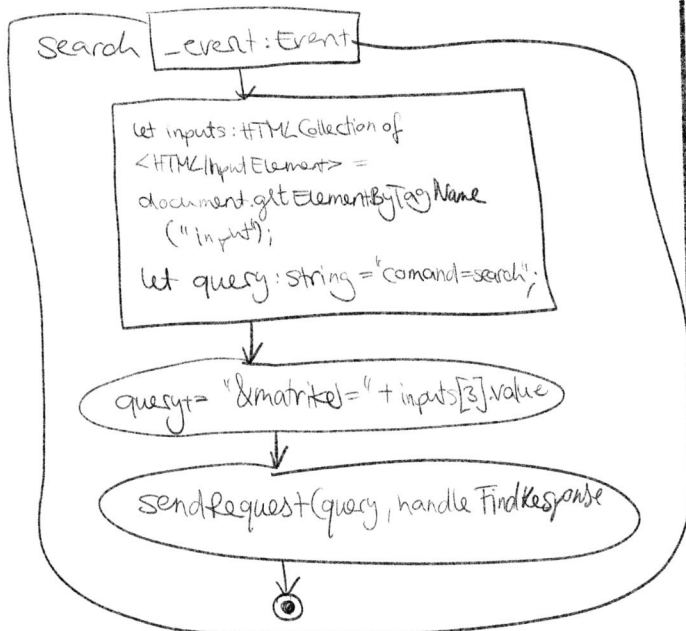 search _event: Event
let inputs: HTMLCollection of
<HTMLInputElement> =
document.getElementByTagName
("input");
let query: string = "comand=search";
query+= "&matrikel=" + inputs[3].value
sendRequest(query, handleFindResponse